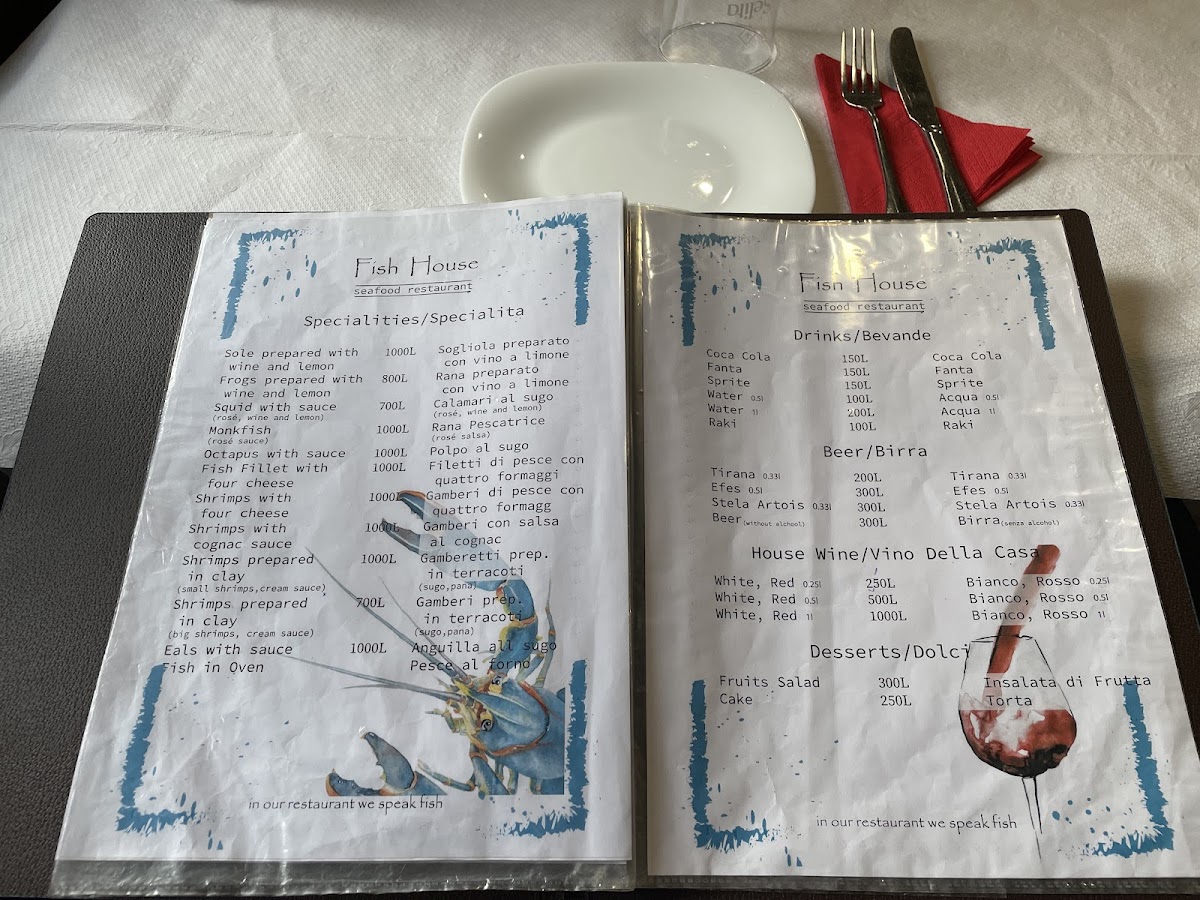 elita
Fish House
seafood restaurant
Specialities/Specialita
Sole prepared with 1000L Sogliola preparato
wine and lemon con vino a limone
Frogs prepared with 800L Rana preparato
wine and lemon con vino a limone
Squid with sauce 700L Calamari al sugo
(rosé, wine and lemon) (rosé, wine and lemon)
Monkfish 1000L Rana Pescatrice
(rosé sauce) (rosé salsa)
Octapus with sauce 1000L Polpo al sugo
Fish Fillet with 1000L Filetti di pesce con
four cheese quattro formaggi
Shrimps with 1000L Gamberi di pesce con
four cheese quattro formagg
Shrimps with 1000L Gamberi con salsa
cognac sauce al cognac
Shrimps prepared 1000L Gamberetti prep.
in clay in terracoti
(small shrimps,cream sauce) (sugo,pana)
Shrimps prepared 700L Gamberi prep.
in clay in terracoti
(big shrimps, cream sauce) (sugo,pana)
Eals with sauce 1000L Anguilla all sugo
Fish in Oven Pesce al forno
in our restaurant we speak fish
Fish House
seafood restaurant
Drinks/Bevande
Coca Cola 150L Coca Cola
Fanta 150L Fanta
Sprite 150L Sprite
Water 0.5l 100L Acqua 0.5l
Water 1l 200L Acqua 1l
Raki 100L Raki
Beer/Birra
Tirana 0.33l 200L Tirana 0.33l
Efes 0.5l 300L Efes 0.5l
Stela Artois 0.33l 300L Stela Artois 0.33l
Beer(without alchool) 300L Birra(senza alcohol)
House Wine/Vino Della Casa
White, Red 0.25l 250L Bianco, Rosso 0.25l
White, Red 0.5l 500L Bianco, Rosso 0.5l
White, Red 1l 1000L Bianco, Rosso 1l
Desserts/Dolci
Fruits Salad 300L Insalata di Frutta
Cake 250L Torta
in our restaurant we speak fish